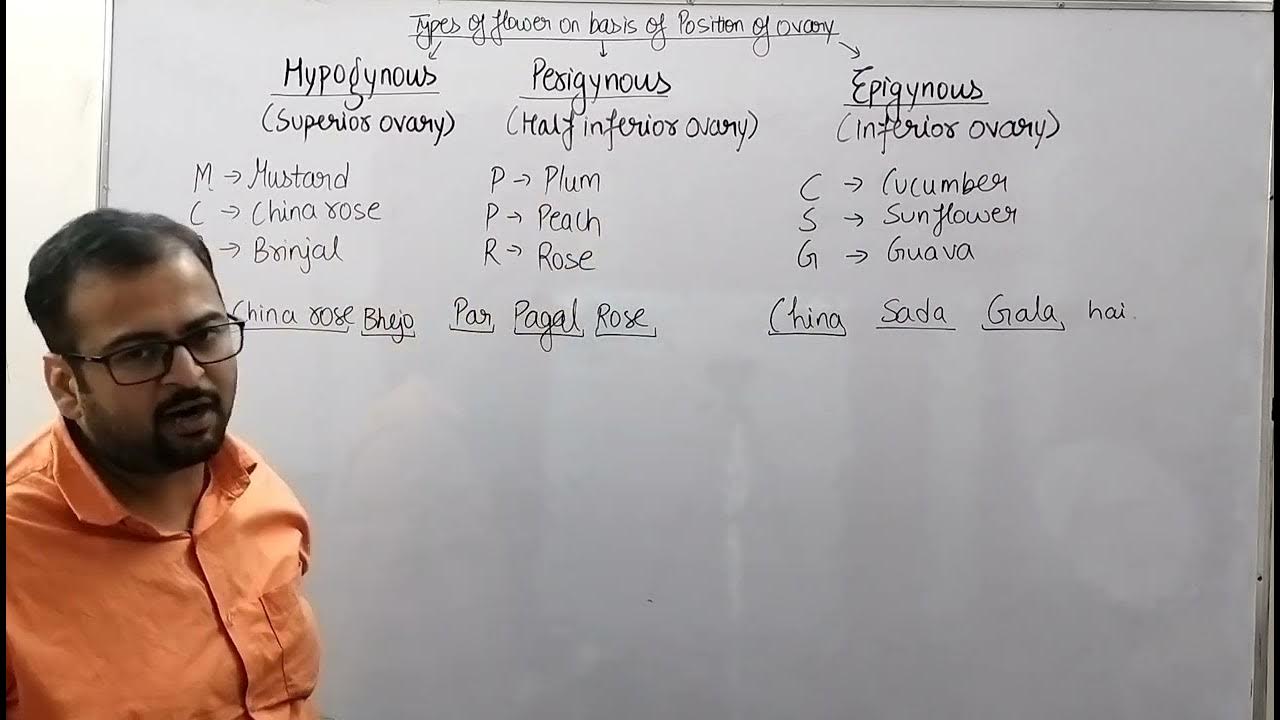 Types of flower on basis of Position of ovary
Hypogynous Perigynous Epigynous
(Superior ovary) (Half inferior ovary) (Inferior ovary)
M → Mustard P → Plum C → Cucumber
C → China rose P → Peach S → Sunflower
→ Brinjal R → Rose G → Guava
China rose Bhejo Par Pagal Rose China Sada Gala hai.